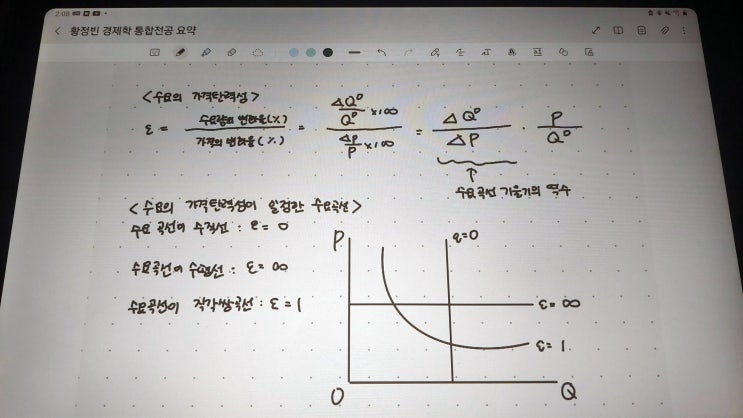 2:08
황정빈 경제학 통합전공 요약
<수요의 가격탄력성>
ε = 수요량의 변화율(%) / 가격의 변화율(%) = ΔQᴰ/Qᴰ ×100 / ΔP/P ×100 = ΔQᴰ/ΔP · P/Qᴰ
↑
수요곡선 기울기의 역수
<수요의 가격탄력성이 일정한 수요곡선>
수요곡선이 수직선 : ε = 0
수요곡선이 수평선 : ε = ∞
수요곡선이 직각쌍곡선 : ε = 1
P
ε=0
ε= ∞
ε= 1
O
Q